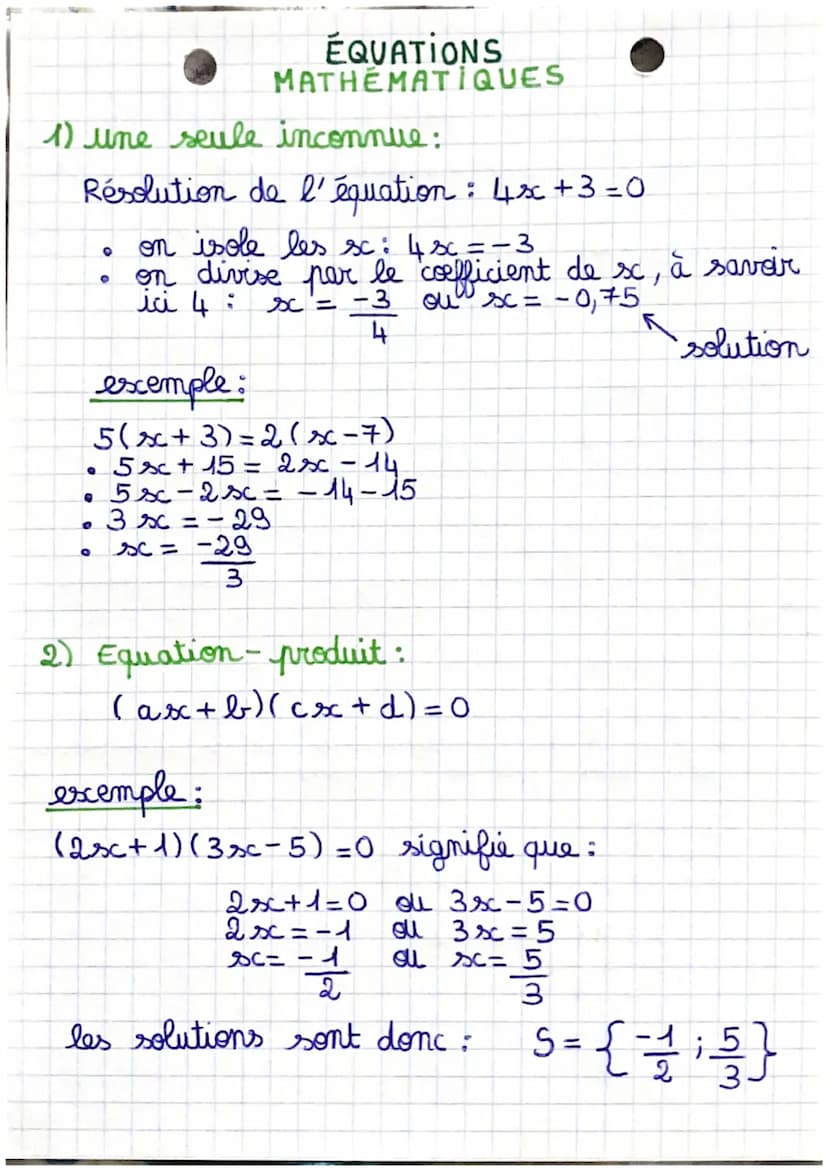 ÉQUATIONS
MATHÉMATIQUES
1) une seule inconnue :
Résolution de l'équation : 4x + 3 = 0
• on isole les x : 4x = -3
• on divise par le coefficient de x, à savoir
ici 4 : x = -3/4 ou x = -0,75
solution
exemple :
5(x + 3) = 2(x - 7)
• 5x + 15 = 2x - 14
• 5x - 2x = -14 - 15
• 3x = -29
• x = -29/3
2) Equation-produit :
(ax + b)(cx + d) = 0
exemple :
(2x + 1)(3x - 5) = 0 signifie que :
2x + 1 = 0 ou 3x - 5 = 0
2x = -1 ou 3x = 5
x = -1/2 ou x = 5/3
les solutions sont donc : S = {-1/2 ; 5/3}